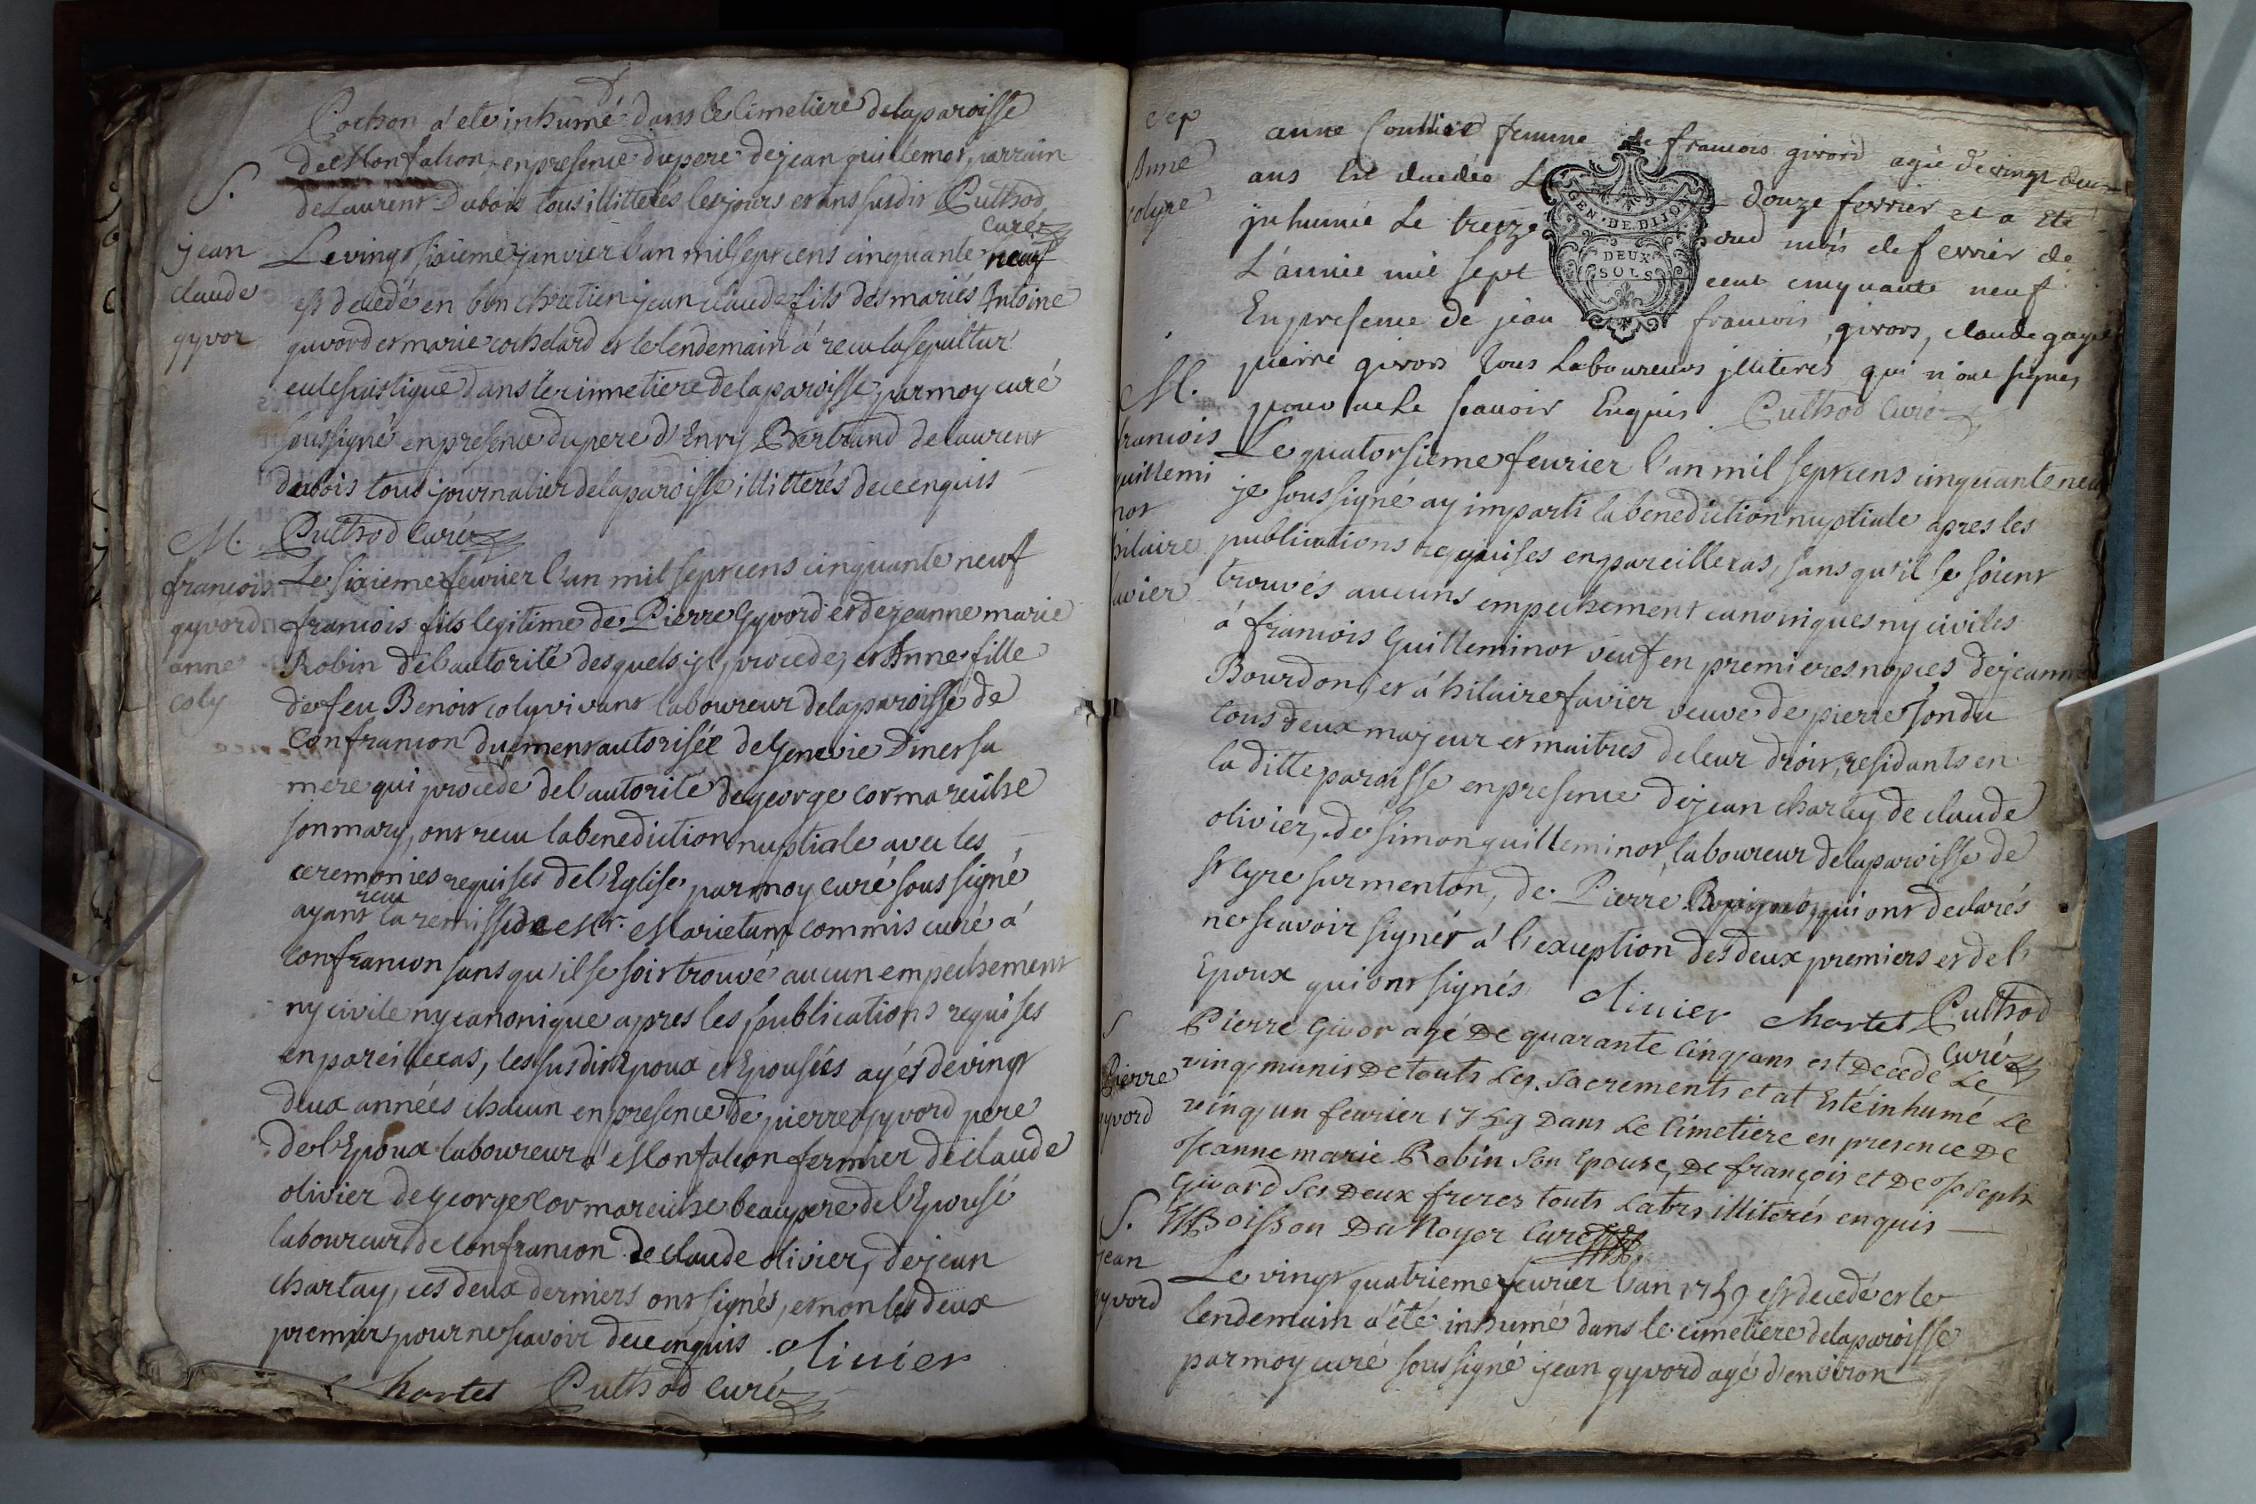 Cochon a été inhumé dans le Cimetiere delaparoisse
de Monfalcon, enpresence dupere dejean guillemot, parrain
deLaurent Dubois tous illitterés lesjours et ans susdit Cuthod
curé
S.
jean
claude
gyvor
Levingt sixieme janvier l'an mil septcens cinquante neuf
est decedé en bon chretien jean claude fils des mariés Antoine
guvord et marie cochelard et le lendemain a recu la sepultur
eclesiastique dans le cimmetiere delaparoisse, par moy curé
soussigné en presence dupere d'Enry Bertrand delaurent
dubois tous journalier delaparoisse illitterés de ce enquis
Cuthod Curé
M.
francois
gyvord
anne
coly
Le sixieme fevrier l'an mil septcens cinquante neuf
francois fils legitime de Pierre Gyvord et dejeanne marie
Robin del'autorité desquels il procede, et Anne fille
de feu Benoit coly vivant laboureur delaparoisse de
Confrancon duement autorisée de Genevie Diner sa
mere qui procede del'autorité degeorge cormareiche
son mary, ont recu labenediction nuptiale avec les
ceremonies requises del'Eglise, par moy curé soussigné
ayant recu la remisse de Mr. Marietan commis curé á
confrancon sans qu'il se soit trouvé aucun empechement
ny civile ny canonique apres les publications requises
en pareillecas, les susdit Epoux et Epousés agés de vingt
deux années chacun en presence de pierre gyvord pere
del'Epoux laboureur a Monfalcon fermier de claude
olivier de george Cormareiche beaupere del'Epousé
laboureur de confrancon de claude olivier, de jean
chartay, ces deux derniers ont signés, et non les deux
premier pour ne scavoir dece enquis Olivier
Chartet Cuthod Curé
Sep
Anne
colyne
anne Coullied femme de francois givord agée de vingt deux
ans Est decedée Le douze fevrier et a Eté
jnhumée Le treize dud mois de fevrier de
L'année mil sept cent cinquante neuf
En presence de jean francois givors, claude gayet
pierre givors tous Laboureurs jlliteres qui n'ont signes
pour ne le scavoir Enquis Cuthod Curé
GEN. DE DIJON
DEUX
SOLS
M.
francois
guillemi
not
hilaire
favier
Le quatorsieme fevrier l'an mil septcens cinquante neuf
je soussigné ay imparti la benediction nuptiale apres les
publications requises en pareillecas, sans qu'il se soient
trouvés aucuns empechement canoniques ny civiles
á francois Guilleminot veuf en premieres nopces dejeanne
Bourdon, et á hilaire favier veuve de pierre Jondu
tous deux majeur et maitres deleur droit, residants en
la ditte paroisse en presence dejean chartey de claude
olivier, de simon guilleminot, laboureur delaparoisse de
st Cyre sur menton, de Pierre qui ont declarés
ne scavoir signér á l'exception des deux premiers et del'
Epoux qui ont signés Olivier Chartet Cuthod
Curé
S
Pierre
gyvord
Pierre Givor agé De quarante Cinq ans est Decedé Le
vingt munis De touts Les Sacrements et at Esté inhumé Le
vingt un fevrier 1759 Dans Le Cimetiere en presence De
Jeanne marie Robin Son Epouse, De françois et De Joseph
Givard Ses Deux freres touts Labrs illiterés enquis
Boisson Du Noyer Curé
S.
jean
gyvord
Le vingt quatrieme fevrier l'an 1759 est decedé et le
lendemain a été inhumé dans le cimetiere delaparoisse
par moy curé soussigné jean gyvord agé d'environ